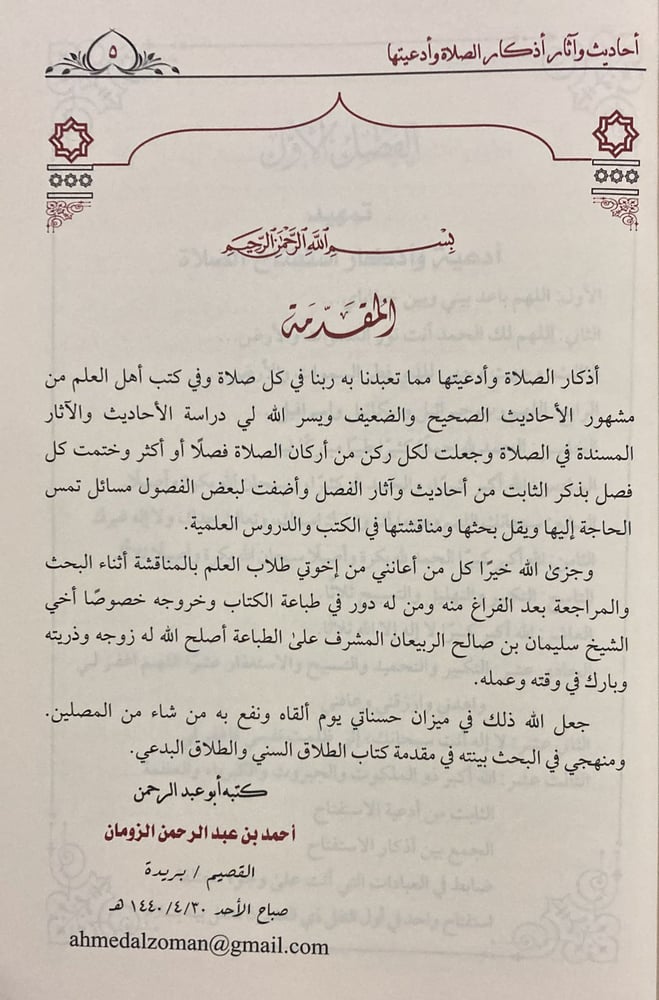 أحاديث وآثار أذكار الصلاة وأدعيتها
٥
بِسْمِ اللَّهِ الرَّحْمَٰنِ الرَّحِيمِ
المُقَدِّمَة
أذكار الصلاة وأدعيتها مما تعبدنا به ربنا في كل صلاة وفي كتب أهل العلم من
مشهور الأحاديث الصحيح والضعيف ويسر الله لي دراسة الأحاديث والآثار
المسندة في الصلاة وجعلت لكل ركن من أركان الصلاة فصلًا أو أكثر وختمت كل
فصل بذكر الثابت من أحاديث وآثار الفصل وأضفت لبعض الفصول مسائل تمس
الحاجة إليها ويقل بحثها ومناقشتها في الكتب والدروس العلمية.
وجزىٰ الله خيرًا كل من أعانني من إخوتي طلاب العلم بالمناقشة أثناء البحث
والمراجعة بعد الفراغ منه ومن له دور في طباعة الكتاب وخروجه خصوصًا أخي
الشيخ سليمان بن صالح الربيعان المشرف علىٰ الطباعة أصلح الله له زوجه وذريته
وبارك في وقته وعمله.
جعل الله ذلك في ميزان حسناتي يوم ألقاه ونفع به من شاء من المصلين.
ومنهجي في البحث بينته في مقدمة كتاب الطلاق السني والطلاق البدعي.
كتبه أبو عبد الرحمن
أحمد بن عبد الرحمن الزومان
القصيم / بريدة
صباح الأحد ١٤٤٠/٤/٣٠ هـ
ahmedalzoman@gmail.com